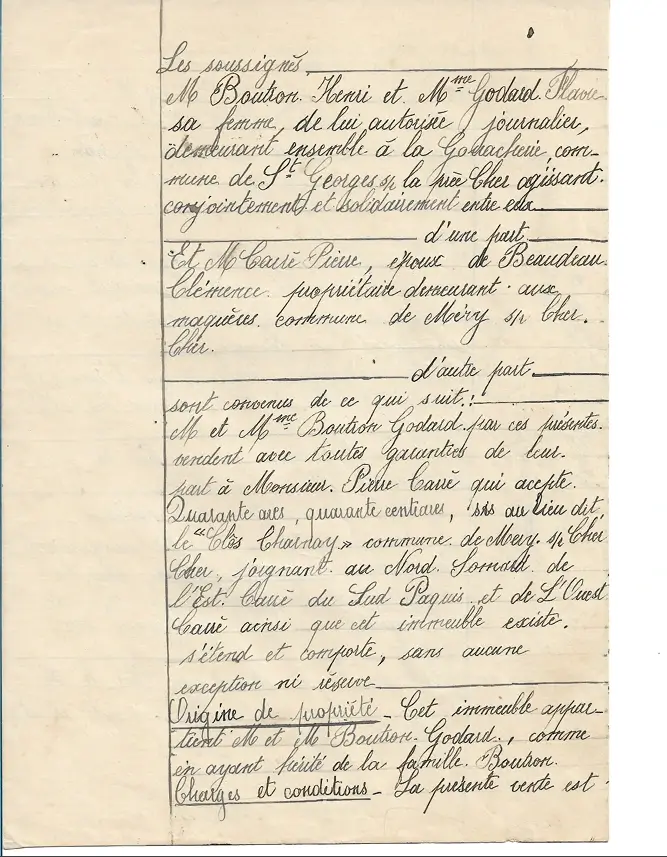 Les soussignés
M Boutron Henri et Mme Godard Flavie
sa femme, de lui autorisée journalier,
demeurant ensemble à la Gouacherie, com-
mune de St Georges s/r la prée Cher agissant
conjointement et solidairement entre eux
d'une part
Et M Carré Pierre, époux de Beaudeau
Clémence propriétaire demeurant aux
maquères commune de Méry s/r Cher.
Cher.
d'autre part
sont convenus de ce qui suit :
M et Mme Boutron Godard par ces présentes
vendent avec toutes garanties de leur
part à Monsieur Pierre Carré qui acepte.
Quarante ares, quarante centiares, sis au lieu dit
le "Clos Charnay" commune de Mery s/r Cher
Cher, joignant au Nord Sornard de
l'Est Carré du Sud Paquis et de L'Ouest
Carré ainsi que cet immeuble existe.
s'étend et comporte, sans aucune
exception ni réserve
Origine de propriété - Cet immeuble appar-
tient M et M Boutron Godard, comme
en ayant hérité de la famille Boutron.
Charges et conditions - La présente vente est